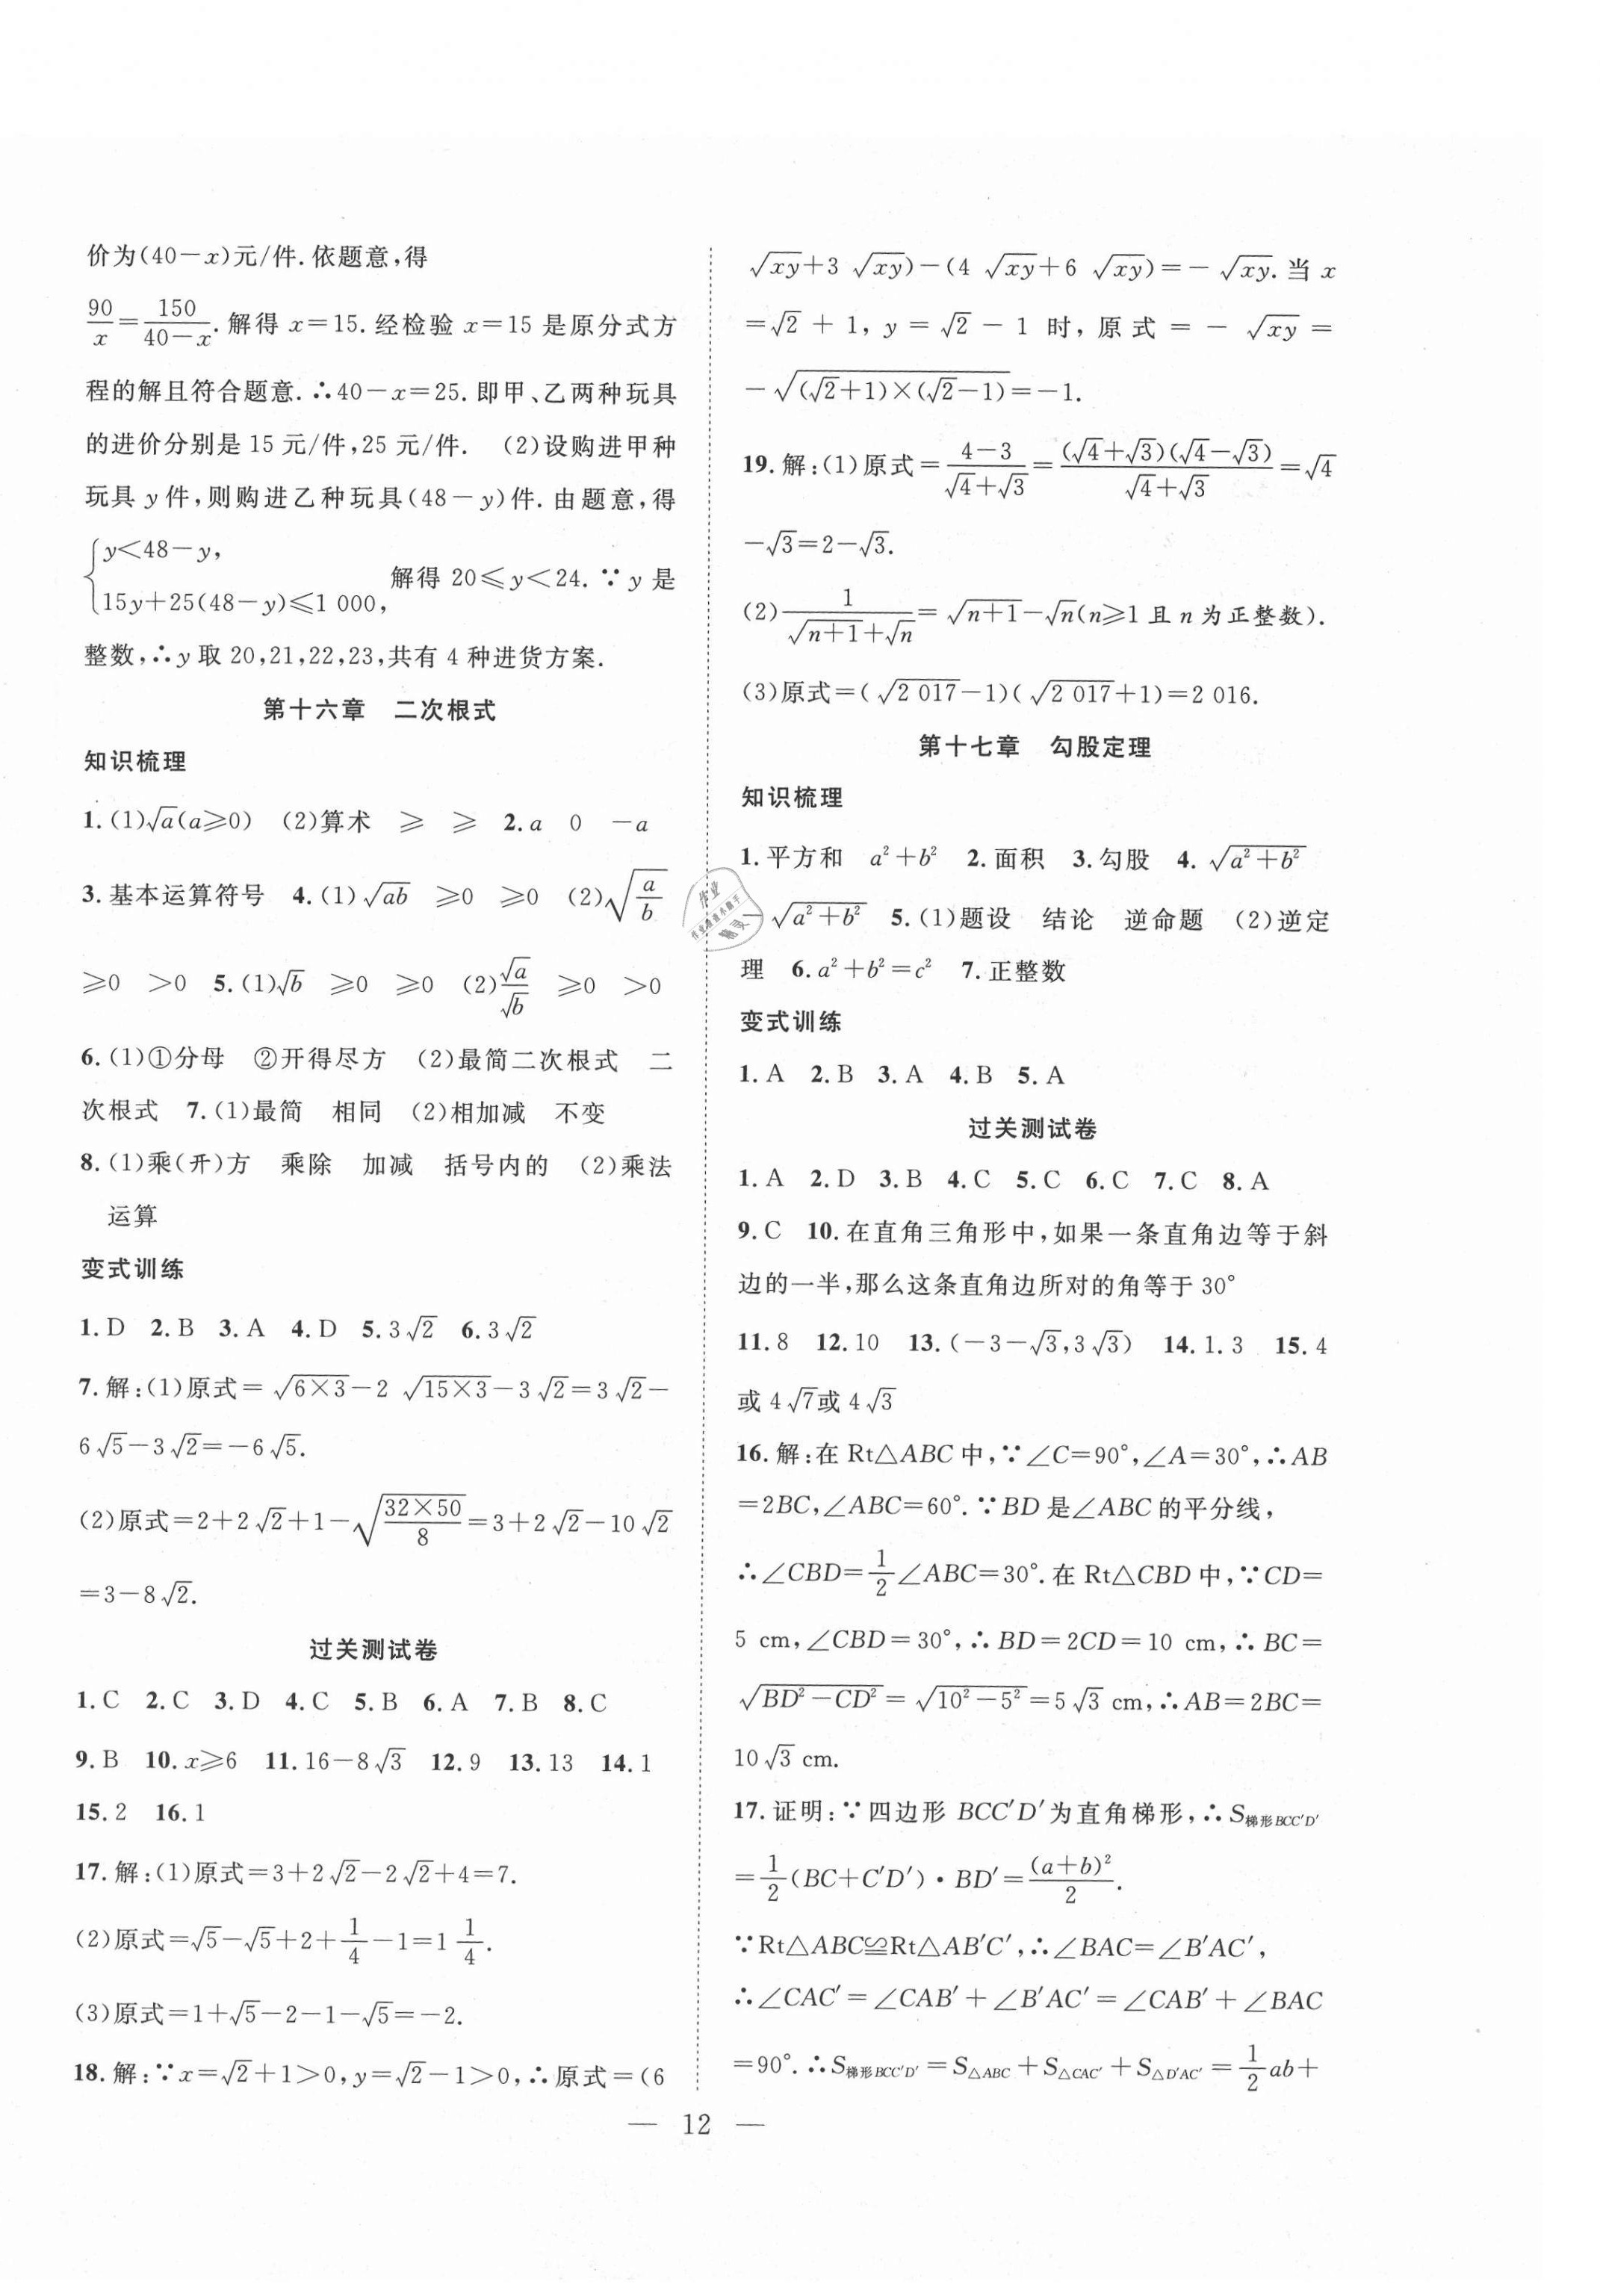 价为(40－x)元/件.依题意,得
90/x＝150/(40－x).解得 x＝15.经检验 x＝15 是原分式方
程的解且符合题意.∴40－x＝25.即甲、乙两种玩具
的进价分别是 15 元/件,25 元/件. (2)设购进甲种
玩具 y 件,则购进乙种玩具(48－y)件.由题意,得
{y＜48－y,
15y＋25(48－y)≤1 000, 解得 20≤y＜24.∵y 是
整数,∴y 取 20,21,22,23,共有 4 种进货方案.
第十六章 二次根式
知识梳理
1.(1)√a(a≥0) (2)算术 ≥ ≥ 2.a 0 －a
3.基本运算符号 4.(1)√(ab) ≥0 ≥0 (2)√(a/b)
≥0 ＞0 5.(1)√b ≥0 ≥0 (2)√a/√b ≥0 ＞0
6.(1)①分母 ②开得尽方 (2)最简二次根式 二
次根式 7.(1)最简 相同 (2)相加减 不变
8.(1)乘(开)方 乘除 加减 括号内的 (2)乘法
运算
变式训练
1.D 2.B 3.A 4.D 5.3√2 6.3√2
7.解:(1)原式＝√(6×3)－2√(15×3)－3√2＝3√2－
6√5－3√2＝－6√5.
(2)原式＝2＋2√2＋1－√(32×50/8)＝3＋2√2－10√2
＝3－8√2.
过关测试卷
1.C 2.C 3.D 4.C 5.B 6.A 7.B 8.C
9.B 10.x≥6 11.16－8√3 12.9 13.13 14.1
15.2 16.1
17.解:(1)原式＝3＋2√2－2√2＋4＝7.
(2)原式＝√5－√5＋2＋1/4－1＝1 1/4.
(3)原式＝1＋√5－2－1－√5＝－2.
18.解:∵x＝√2＋1＞0,y＝√2－1＞0,∴原式＝(6
√(xy)＋3√(xy))－(4√(xy)＋6√(xy))＝－√(xy).当 x
＝√2＋1, y＝√2－1 时,原式＝－√(xy)＝
－√((√2＋1)×(√2－1))＝－1.
19.解:(1)原式＝(4－3)/(√4＋√3)＝(√4＋√3)(√4－√3)/(√4＋√3)＝√4
－√3＝2－√3.
(2)1/(√(n＋1)＋√n)＝√(n＋1)－√n(n≥1 且 n 为正整数).
(3)原式＝(√(2 017)－1)(√(2 017)＋1)＝2 016.
第十七章 勾股定理
知识梳理
1.平方和 a²＋b² 2.面积 3.勾股 4.√(a²＋b²)
－√(a²＋b²) 5.(1)题设 结论 逆命题 (2)逆定
理 6.a²＋b²＝c² 7.正整数
变式训练
1.A 2.B 3.A 4.B 5.A
过关测试卷
1.A 2.D 3.B 4.C 5.C 6.C 7.C 8.A
9.C 10.在直角三角形中,如果一条直角边等于斜
边的一半,那么这条直角边所对的角等于 30°
11.8 12.10 13.(－3－√3,3√3) 14.1.3 15.4
或 4√7或 4√3
16.解:在 Rt△ABC 中,∵∠C＝90°,∠A＝30°,∴AB
＝2BC,∠ABC＝60°.∵BD 是∠ABC 的平分线,
∴∠CBD＝1/2∠ABC＝30°.在 Rt△CBD 中,∵CD＝
5 cm,∠CBD＝30°,∴BD＝2CD＝10 cm,∴BC＝
√(BD²－CD²)＝√(10²－5²)＝5√3 cm,∴AB＝2BC＝
10√3 cm.
17.证明:∵四边形 BCC′D′为直角梯形,∴S梯形BCC′D′
＝1/2(BC＋C′D′)·BD′＝(a＋b)²/2.
∵Rt△ABC≌Rt△AB′C′,∴∠BAC＝∠B′AC′,
∴∠CAC′＝∠CAB′＋∠B′AC′＝∠CAB′＋∠BAC
＝90°.∴S梯形BCC′D′＝S△ABC＋S△CAC′＋S△D′AC′＝1/2 ab＋
— 12 —